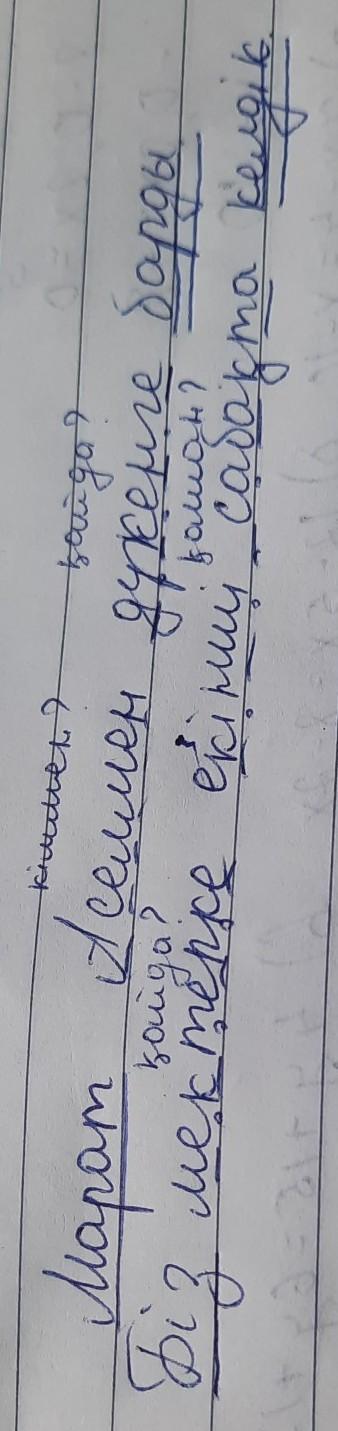 кіммен? қайда?
Марат Әсеммен дүкенге барды
қайда? қашан?
Біз мектепке екінші сабақта келдік.